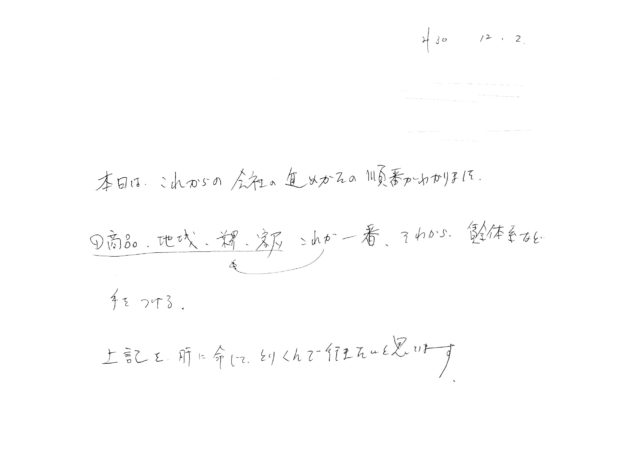 H30 12.2
本日は、これからの会社の進めかたの順番がわかりました。
①商品、地域、業界・客層 これが一番、それから、賃金体系などを
手をつける。
上記を肝に命じて、とりくんで行きたいと思います。